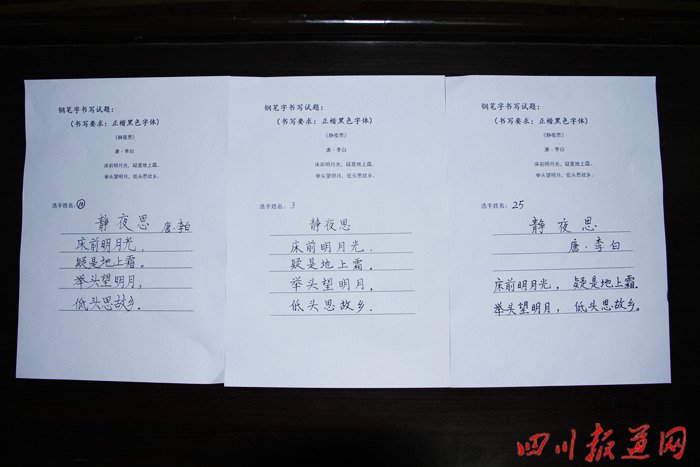 钢笔字书写试题：
（书写要求：正楷黑色字体）
《静夜思》
唐·李白
床前明月光，疑是地上霜。
举头望明月，低头思故乡。
选手姓名：
静夜思 唐 李白
床前明月光，
疑是地上霜。
举头望明月，
低头思故乡。
钢笔字书写试题：
（书写要求：正楷黑色字体）
《静夜思》
唐·李白
床前明月光，疑是地上霜。
举头望明月，低头思故乡。
选手姓名：3
静夜思
床前明月光．
疑是地上霜．
举头望明月．
低头思故乡．
钢笔字书写试题：
（书写要求：正楷黑色字体）
《静夜思》
唐·李白
床前明月光，疑是地上霜。
举头望明月，低头思故乡。
选手姓名：25
静夜思
唐·李白
床前明月光，疑是地上霜．
举头望明月，低头思故乡。
四川报道网